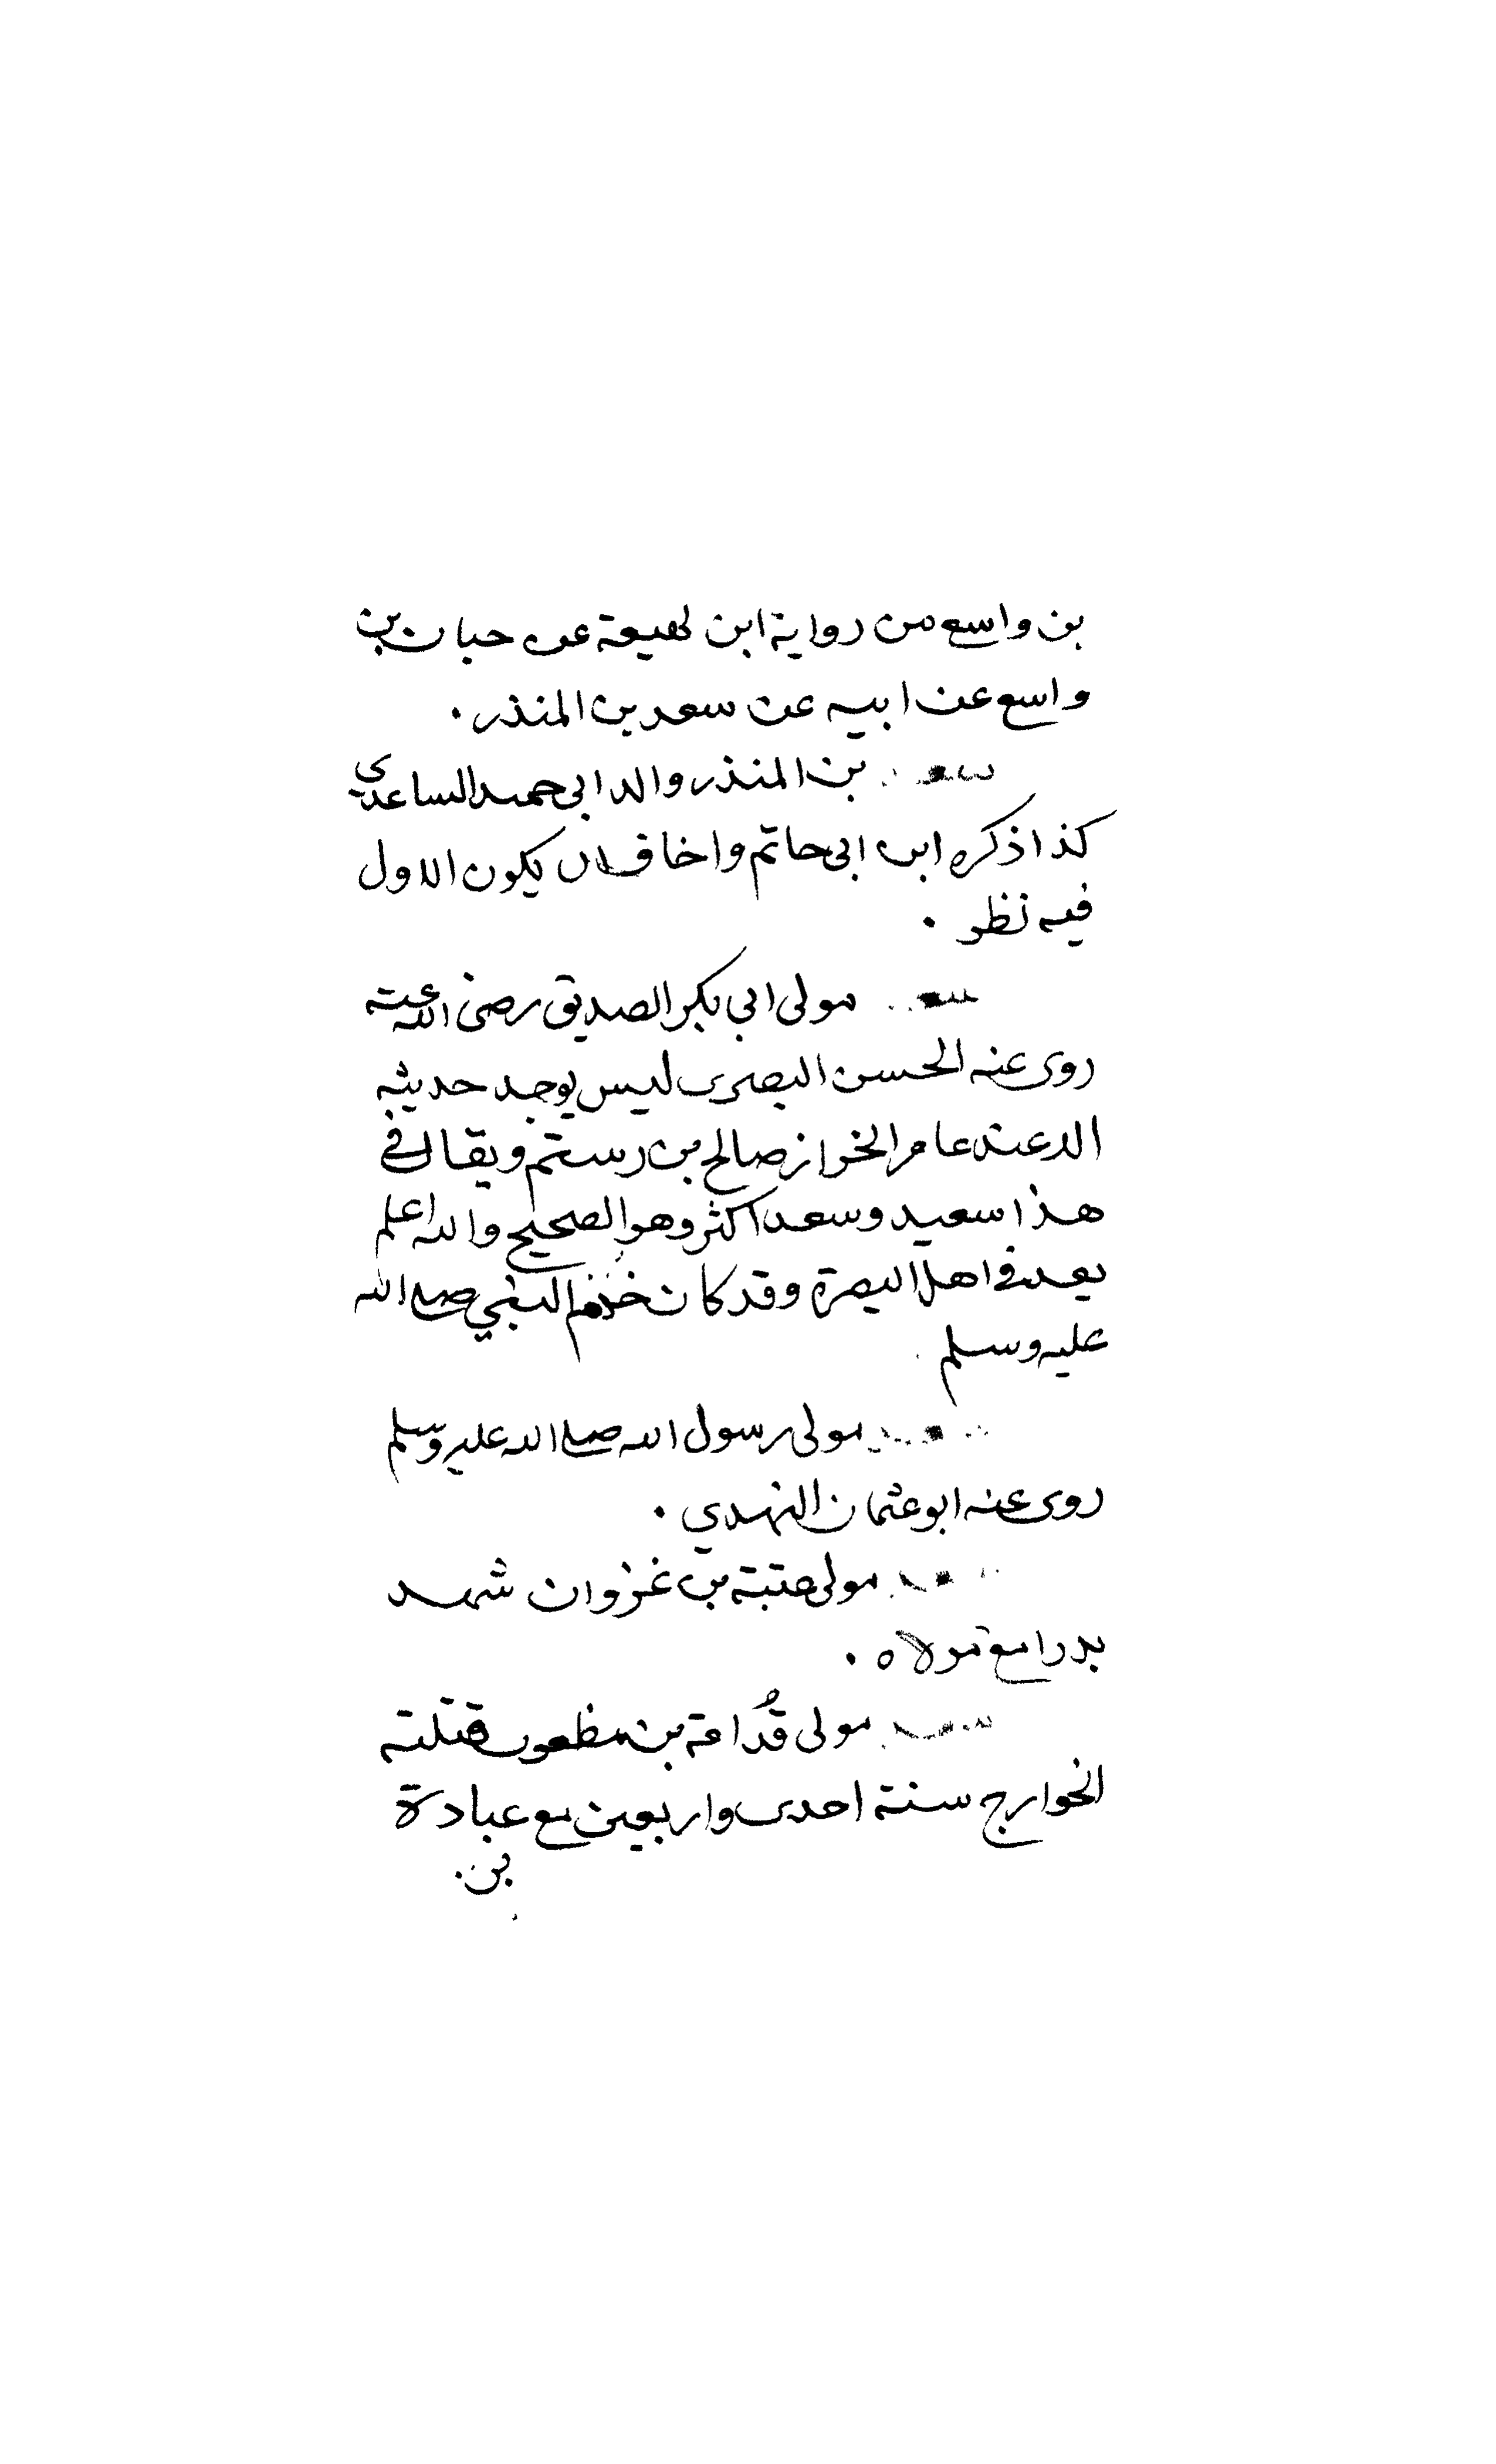 بن واسع من رواية ابن لهيعة عن حبان بن
واسع عن ابيه عن سعد بن المنذر.
بن المنذر والد ابي حميد الساعدي
كذا ذكره ابن ابي حاتم واخاف ان يكون الاول
فيه نظر.
مولى ابي بكر الصديق رضى الله عنه
روى عنه الحسن البصري ليس يوجد حديثه
الا عند عامر الخراز صالح بن رستم ويقال في
هذا سعيد وسعد اكثر وهو الصحيح والله اعلم
يعد في اهل البصرة وقد كان خدم النبي صلى الله
عليه وسلم
مولى رسول الله صلى الله عليه وسلم
روى عنه ابو عثمان النهدي.
مولى عتبة بن غزوان شهد
بدرا مع مولاه.
مولى قُدامة بن مظعون قتلته
الخوارج سنة احدى واربعين مع عبادة
بن.